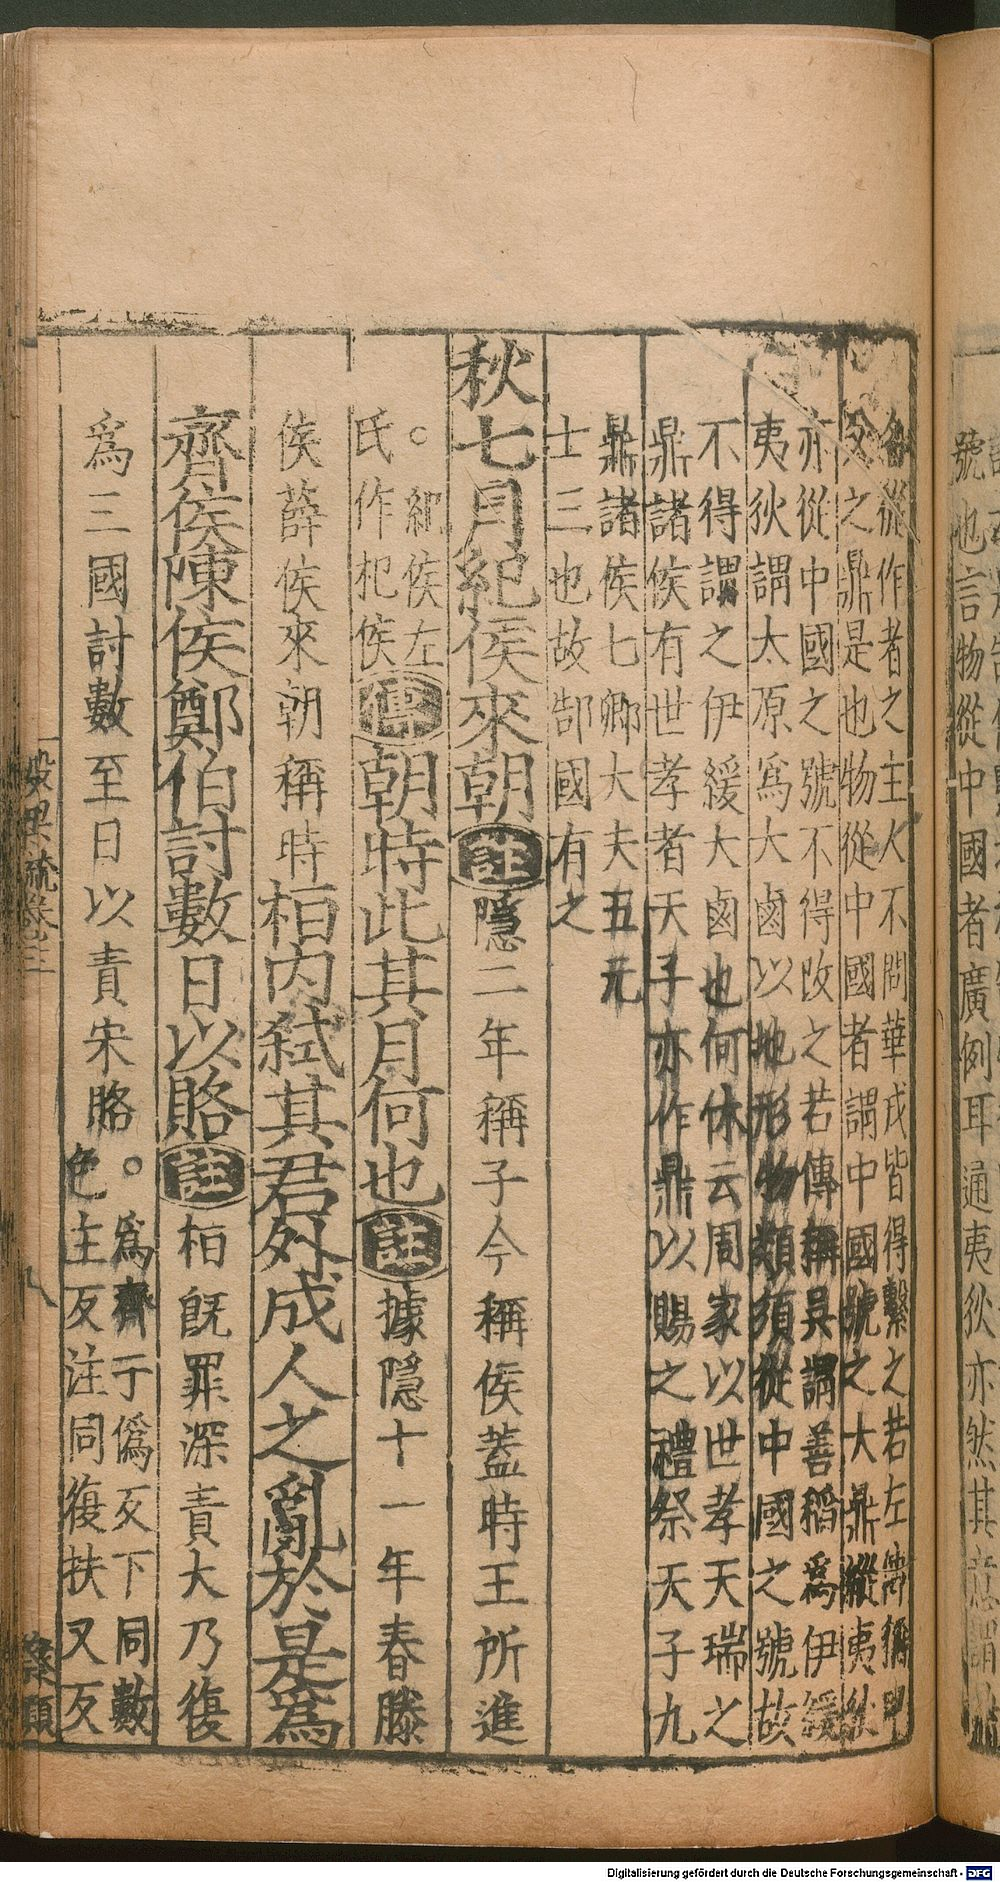 名從作者之主人不問華戎皆得繫之若左傳稱甲
父之鼎是也物從中國者謂中國號之大鼎縱夷狄
亦從中國之號不得改之若傳稱吳謂善稻爲伊緩
夷狄謂太原爲大鹵以地形物類須從中國之號故
不得謂之伊緩大鹵也何休云周家以世孝天瑞之
鼎諸侯有世孝者天子亦作鼎以賜之禮祭天子九
鼎諸侯七卿大夫五元
士三也故郜國有之
秋七月紀侯來朝註隱二年稱子今稱侯蓋時王所進
。紀侯左
氏作杞侯傳朝時此其月何也註據隱十一年春滕
侯薛侯來朝稱時桓内弑其君外成人之亂於是爲
齊侯陳侯鄭伯討數日以賂註桓既罪深責大乃復
爲三國討數至日以責宋賂。爲齊于僞反下同數
色主反注同復扶又反
穀梁疏卷三
八
號也言物從中國者廣例耳通夷狄亦然其意謂
Digitalisierung gefördert durch die Deutsche Forschungsgemeinschaft - DFG